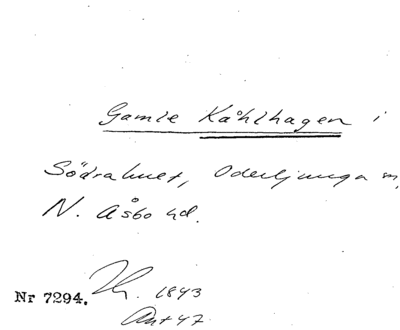 Gamle Kåhlhagen i
Södrahult, Oderljunga sn,
N. Åsbo hd.
Nr 7294. 1843
Ant 47